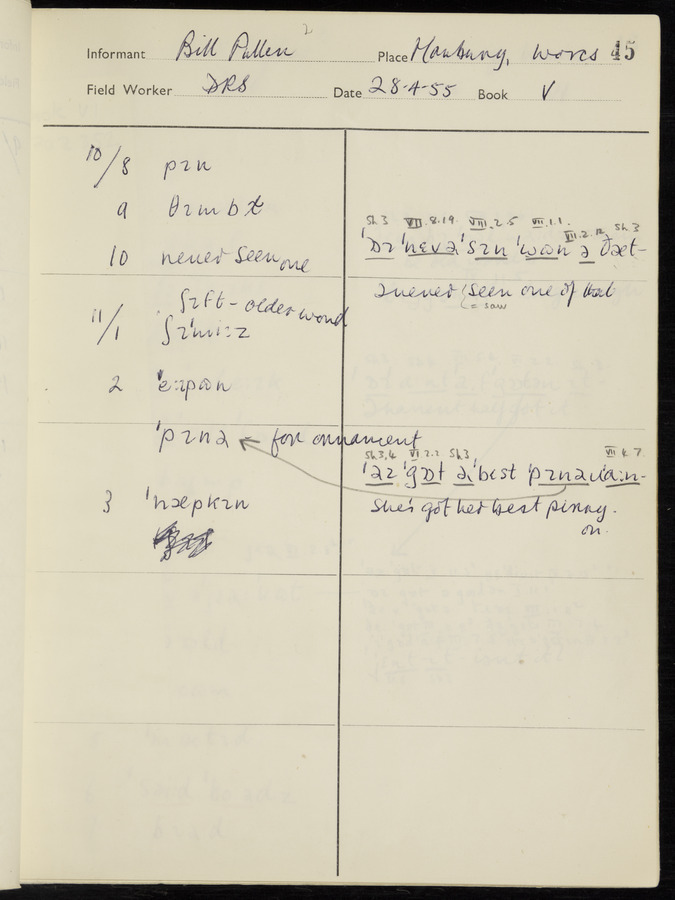 Informant Bill Pullen Place Hanbury, Worcs 45
Field Worker DRS Date 28-4-55 Book V
10/8 pɪn
9 θɪmbɫ
10 never seen one
Sh.3 VII.8.19. VIII.2.5 VII.1.1. VII.2.12 Sh 3
'ɒɪ 'nɛvə 'sɪn 'wɒn ə ðæt-
I never (seen one of that
(= saw
ʃɪft - older word
11/1
2 'e:ɪpɒn
'pɪnə ← for ornament
Sh.3,4 VI.2.2 Sh3 VII.4.7
'əɪ 'gɒt ə 'bɛst 'pɪnə
She's got her best pinny
on.
3 'næpkɪn